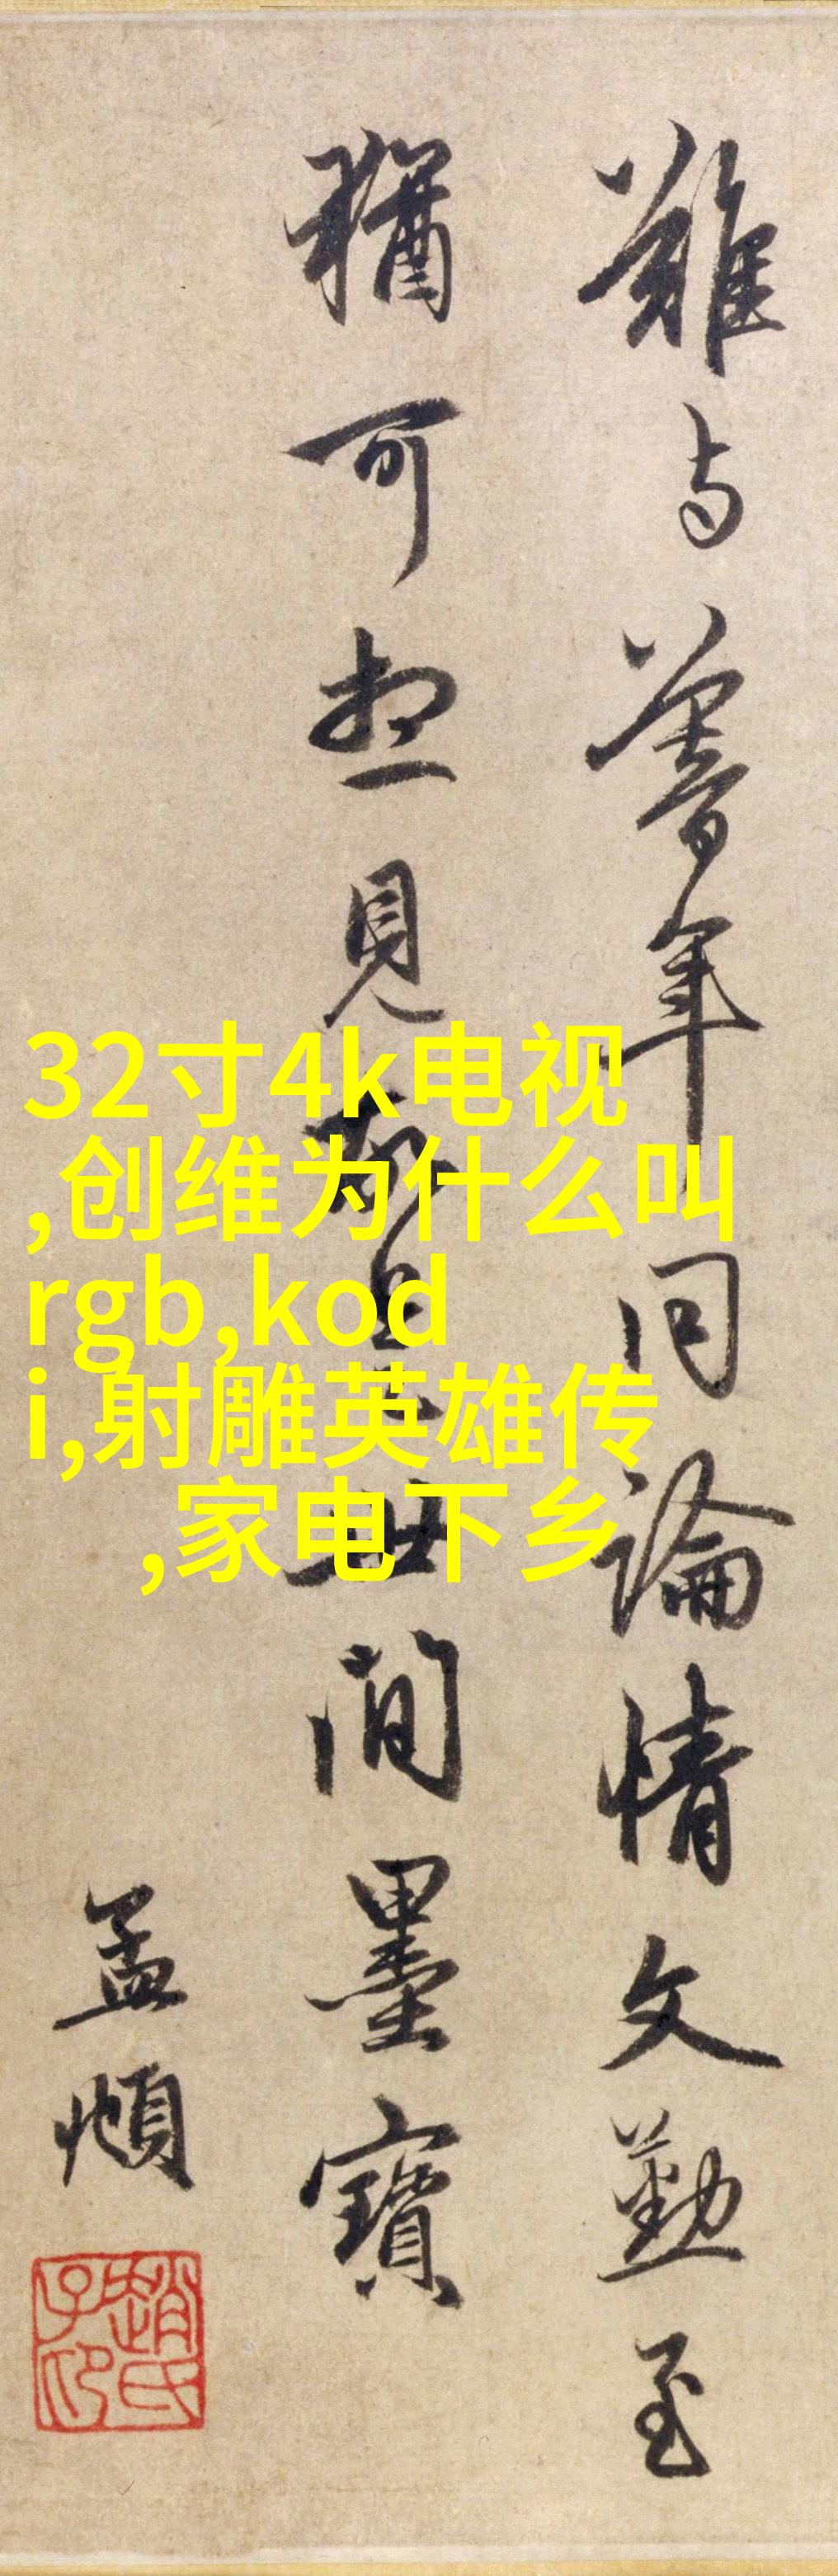 難与暮年同論情文勤至
猶可想見故是世間墨寶
孟頫
趙氏子昂
32寸4k电视
,创维为什么叫
rgb,kod
i,射雕英雄传
,家电下乡